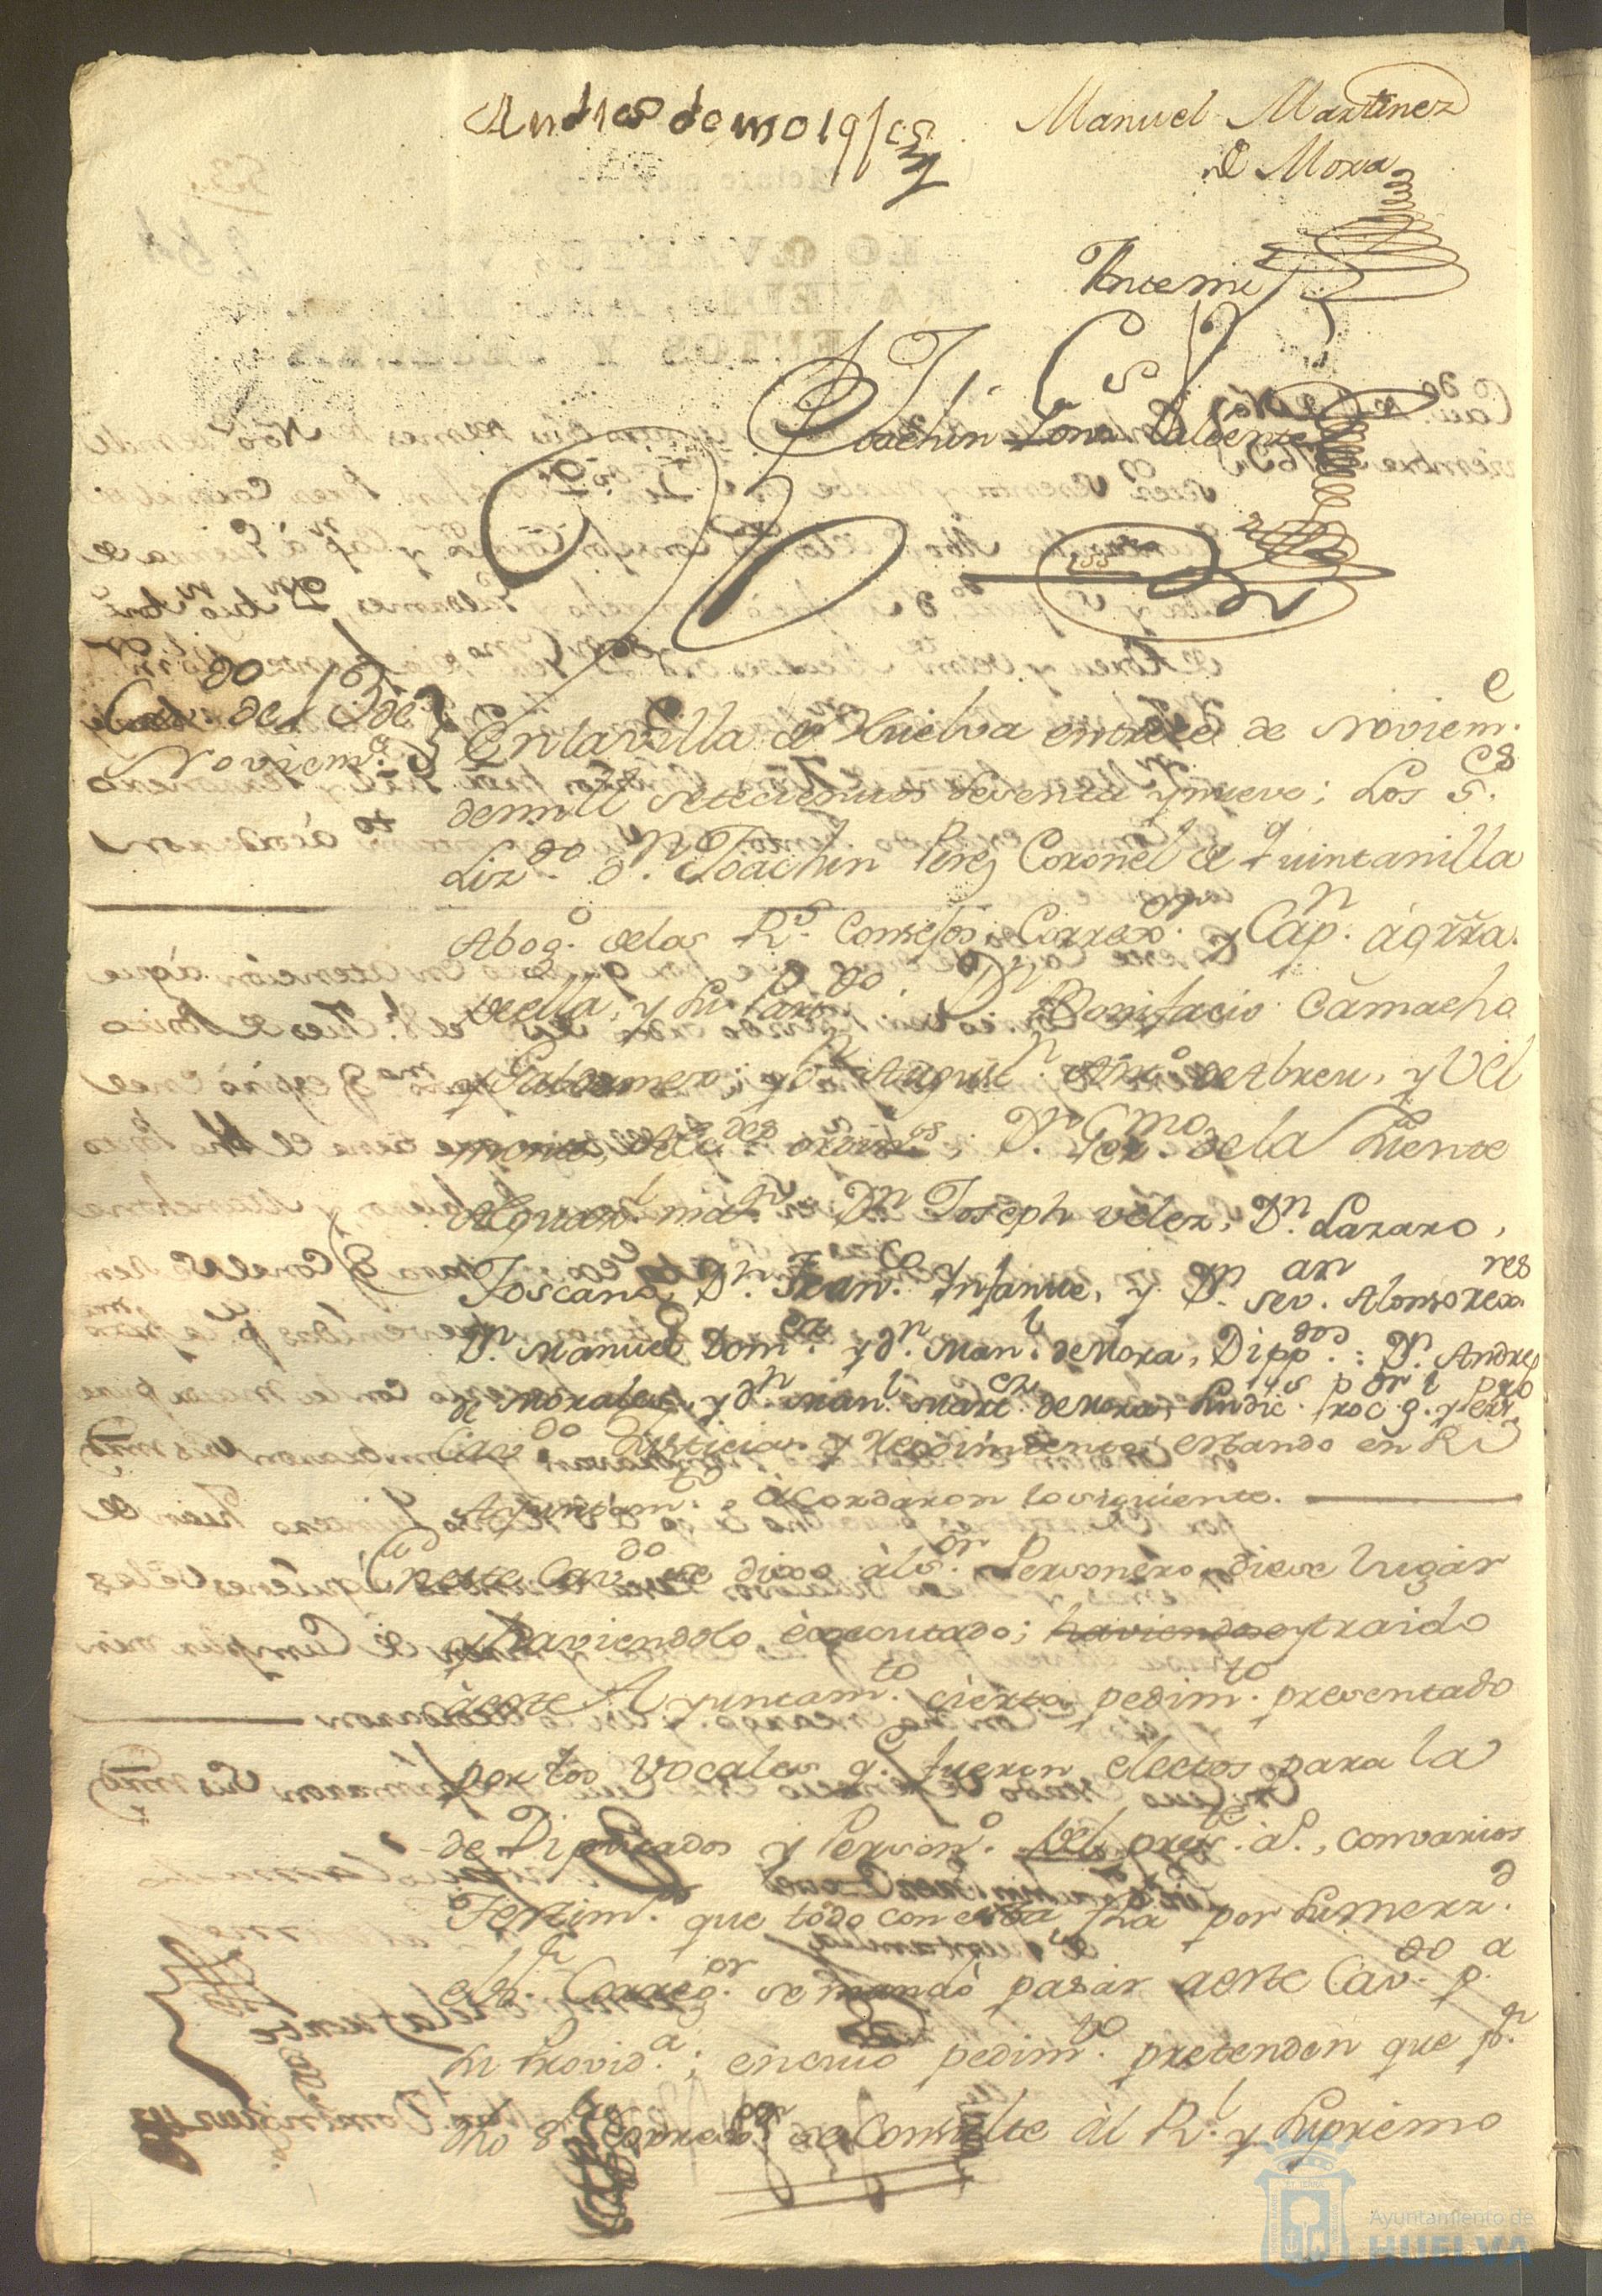 Andres de morales
Manuel Martinez
de Mora
Antemi
Joachin
Cav.do de 13 de
Noviem.e
En la Villa de Huelva en trece de Noviem.e
de mill setecientos sesenta y nueve; Los S.es
Liz.do D.n Joachin Perez Coronel de Quintanilla
Abog.o de los R.s Consejos, Correx.or y Cap.n á grra.
de ella, y su Part.do D.n Bonifacio Camacho
y D.n August.n de Abreu, y Vel
monte, Alc.des ordin.os; D.n Ger.mo de la Fuente
Alguas.l ma.or D.n Joseph Velez, D.n Lazaro
Toscano, D.n Fran.co Infante, y D.n Sev.an Alonso rex.res
D.n Manuel Dom.ez y D.n Man.l de Mora, Dipp.dos: D.n Andres
de Morales, y D.n Man.l Mart.ez de Mora, Sindic.s Proc.or g.l y Per.ro
Cav.do Justicia y Reximiento estando en
Ayuntam.to acordaron lo siguiente.
En este Cav.do se dixo al s.or Personero diese lugar
y haviendolo executado; haviendose traido
á este Ayuntam.to cierto pedim.to presentado
por los Vocales q. fueron electos para la
de Diputados y Person.o del pres.te a.o, con varios
Testim.s que todo con esta fha por su merz.d
el s.r Correg.or se mandó pasar a este Cav.do p.a
su Provid.a; en cuio pedim.to pretenden que p.r
dho S.r Correg.or se Consulte al R.l y Supremo
Ayuntamiento de
HUELVA